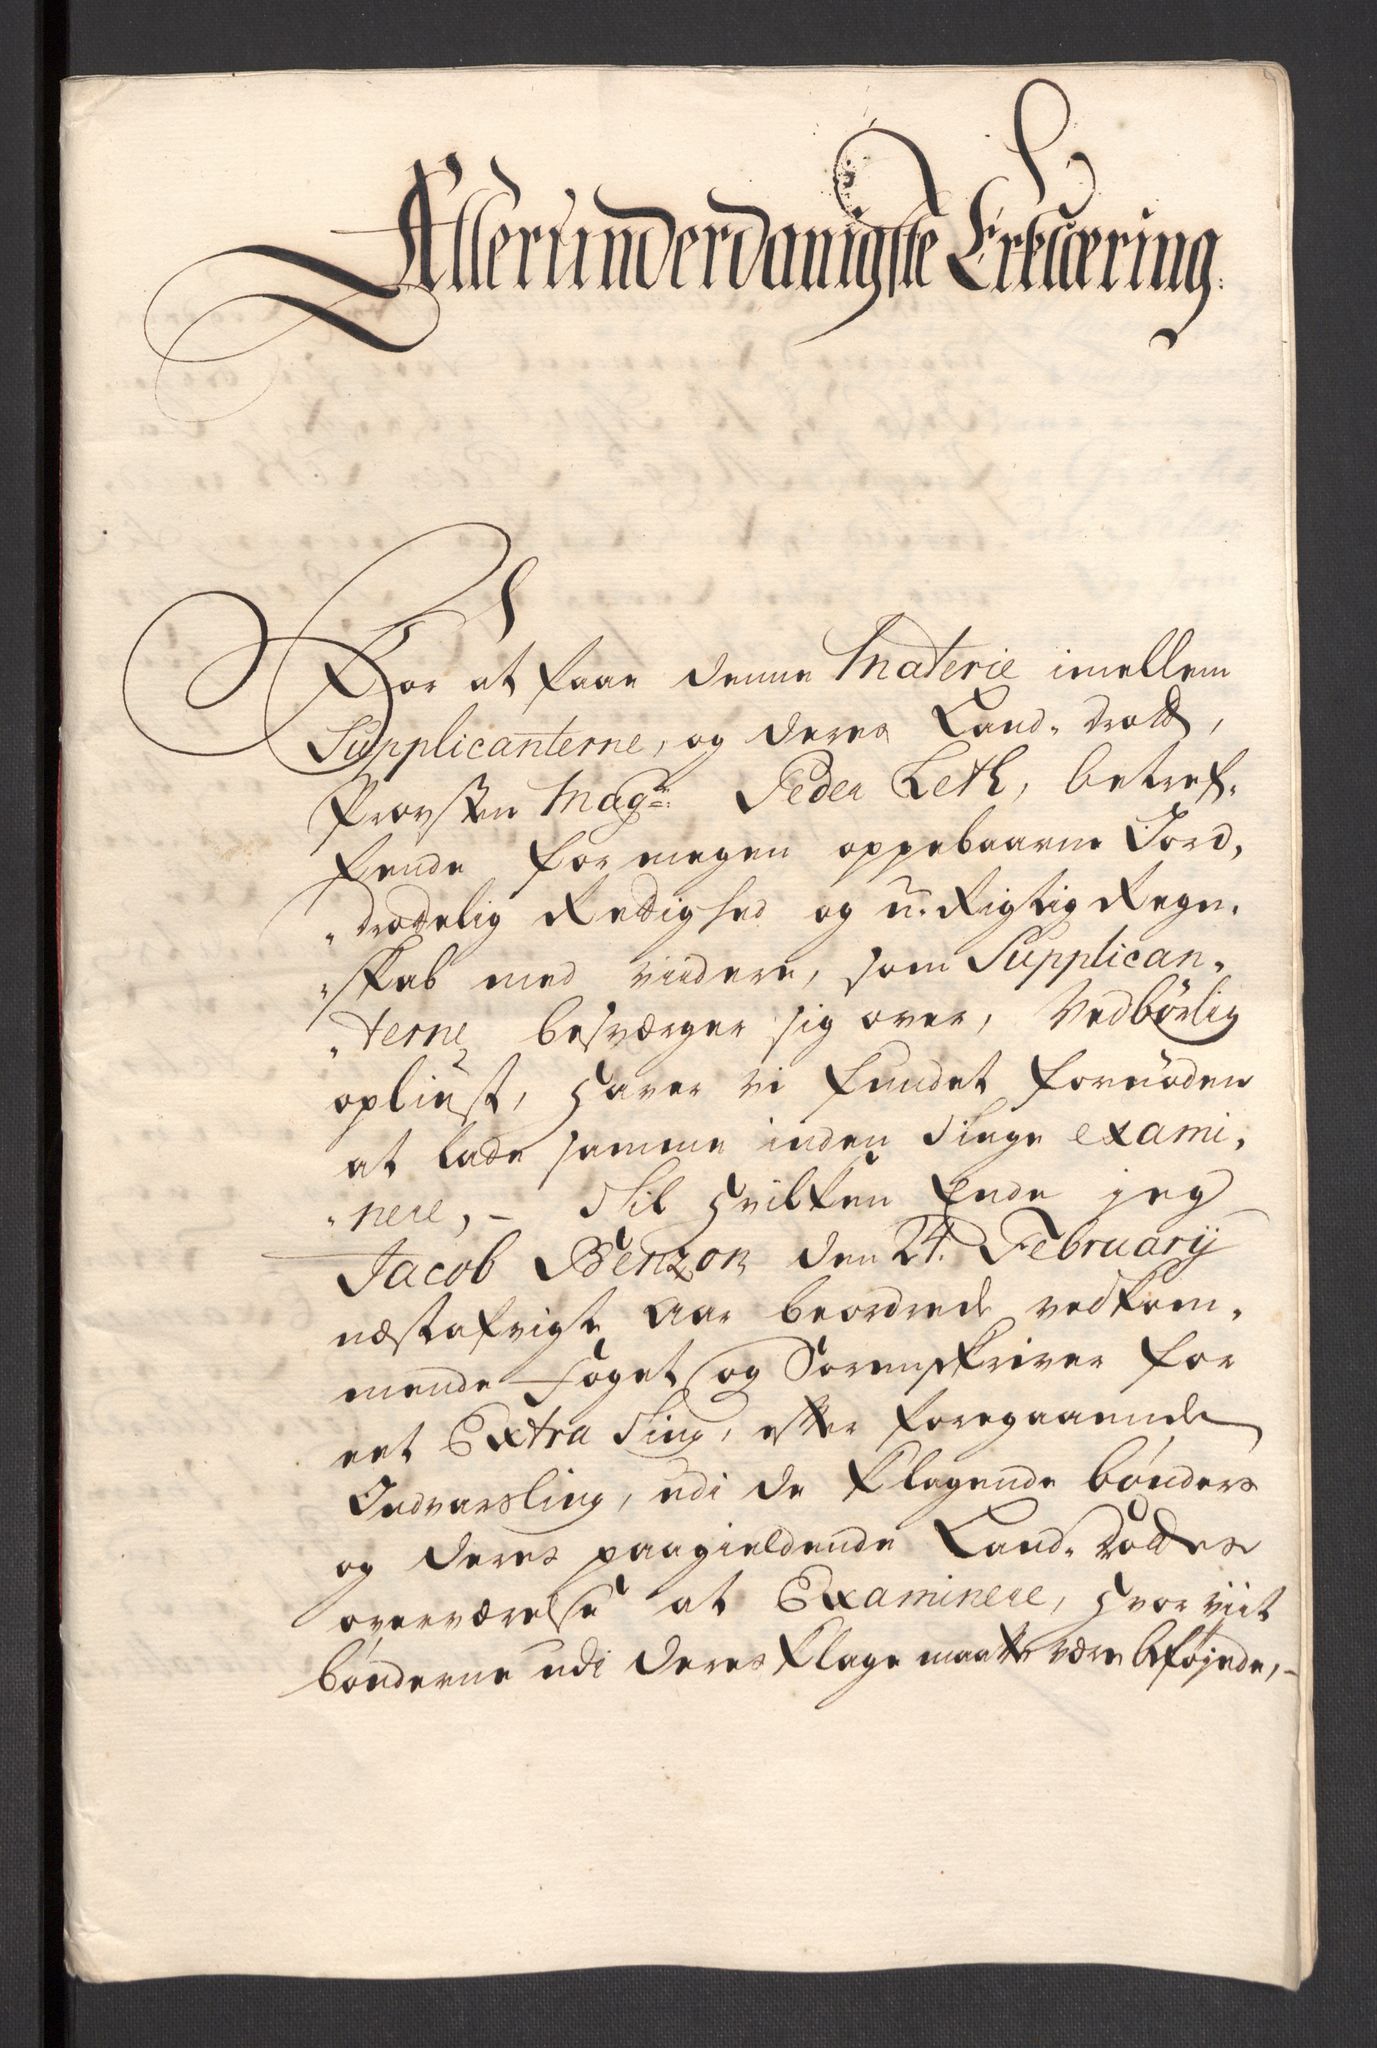 Allerunderdanigste Erklæring.
For at faae denne Materie imellem
Supplicanterne, og deres Land-drott,
Provsten Mag:r Peder Leth, betref-
fende for megen oppebaarne Jord,
"drottelig Rettighed og u-Rigtig Regn-
"skab med viidere, som Supplican-
"terne besværger sig over, Vedbörlig
opliust, haver vi fundet fornöden
at lade samme inden Tinge exami-
"nere, - Til hvilken Ende jeg
Jacob Benzon den 24. February
næstafvigte Aar beordrede vedkom-
mende Foget og Sorenskriver for
eet Extra Ting, efter foregaaende
Indvarsling, udi de klagende bønders
og deres paagieldende Land-Dottes
overværelse at Examinere, hvor viit
bønderne udi deres klage maatte være beføjede, -